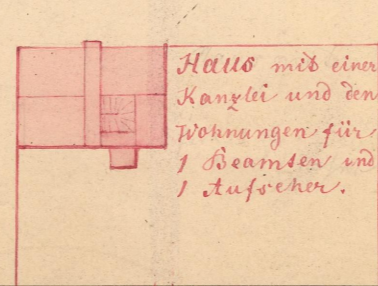 Haus mit einer
Kanzlei und den
Wohnungen für
1 Beamten und
1 Aufseher.